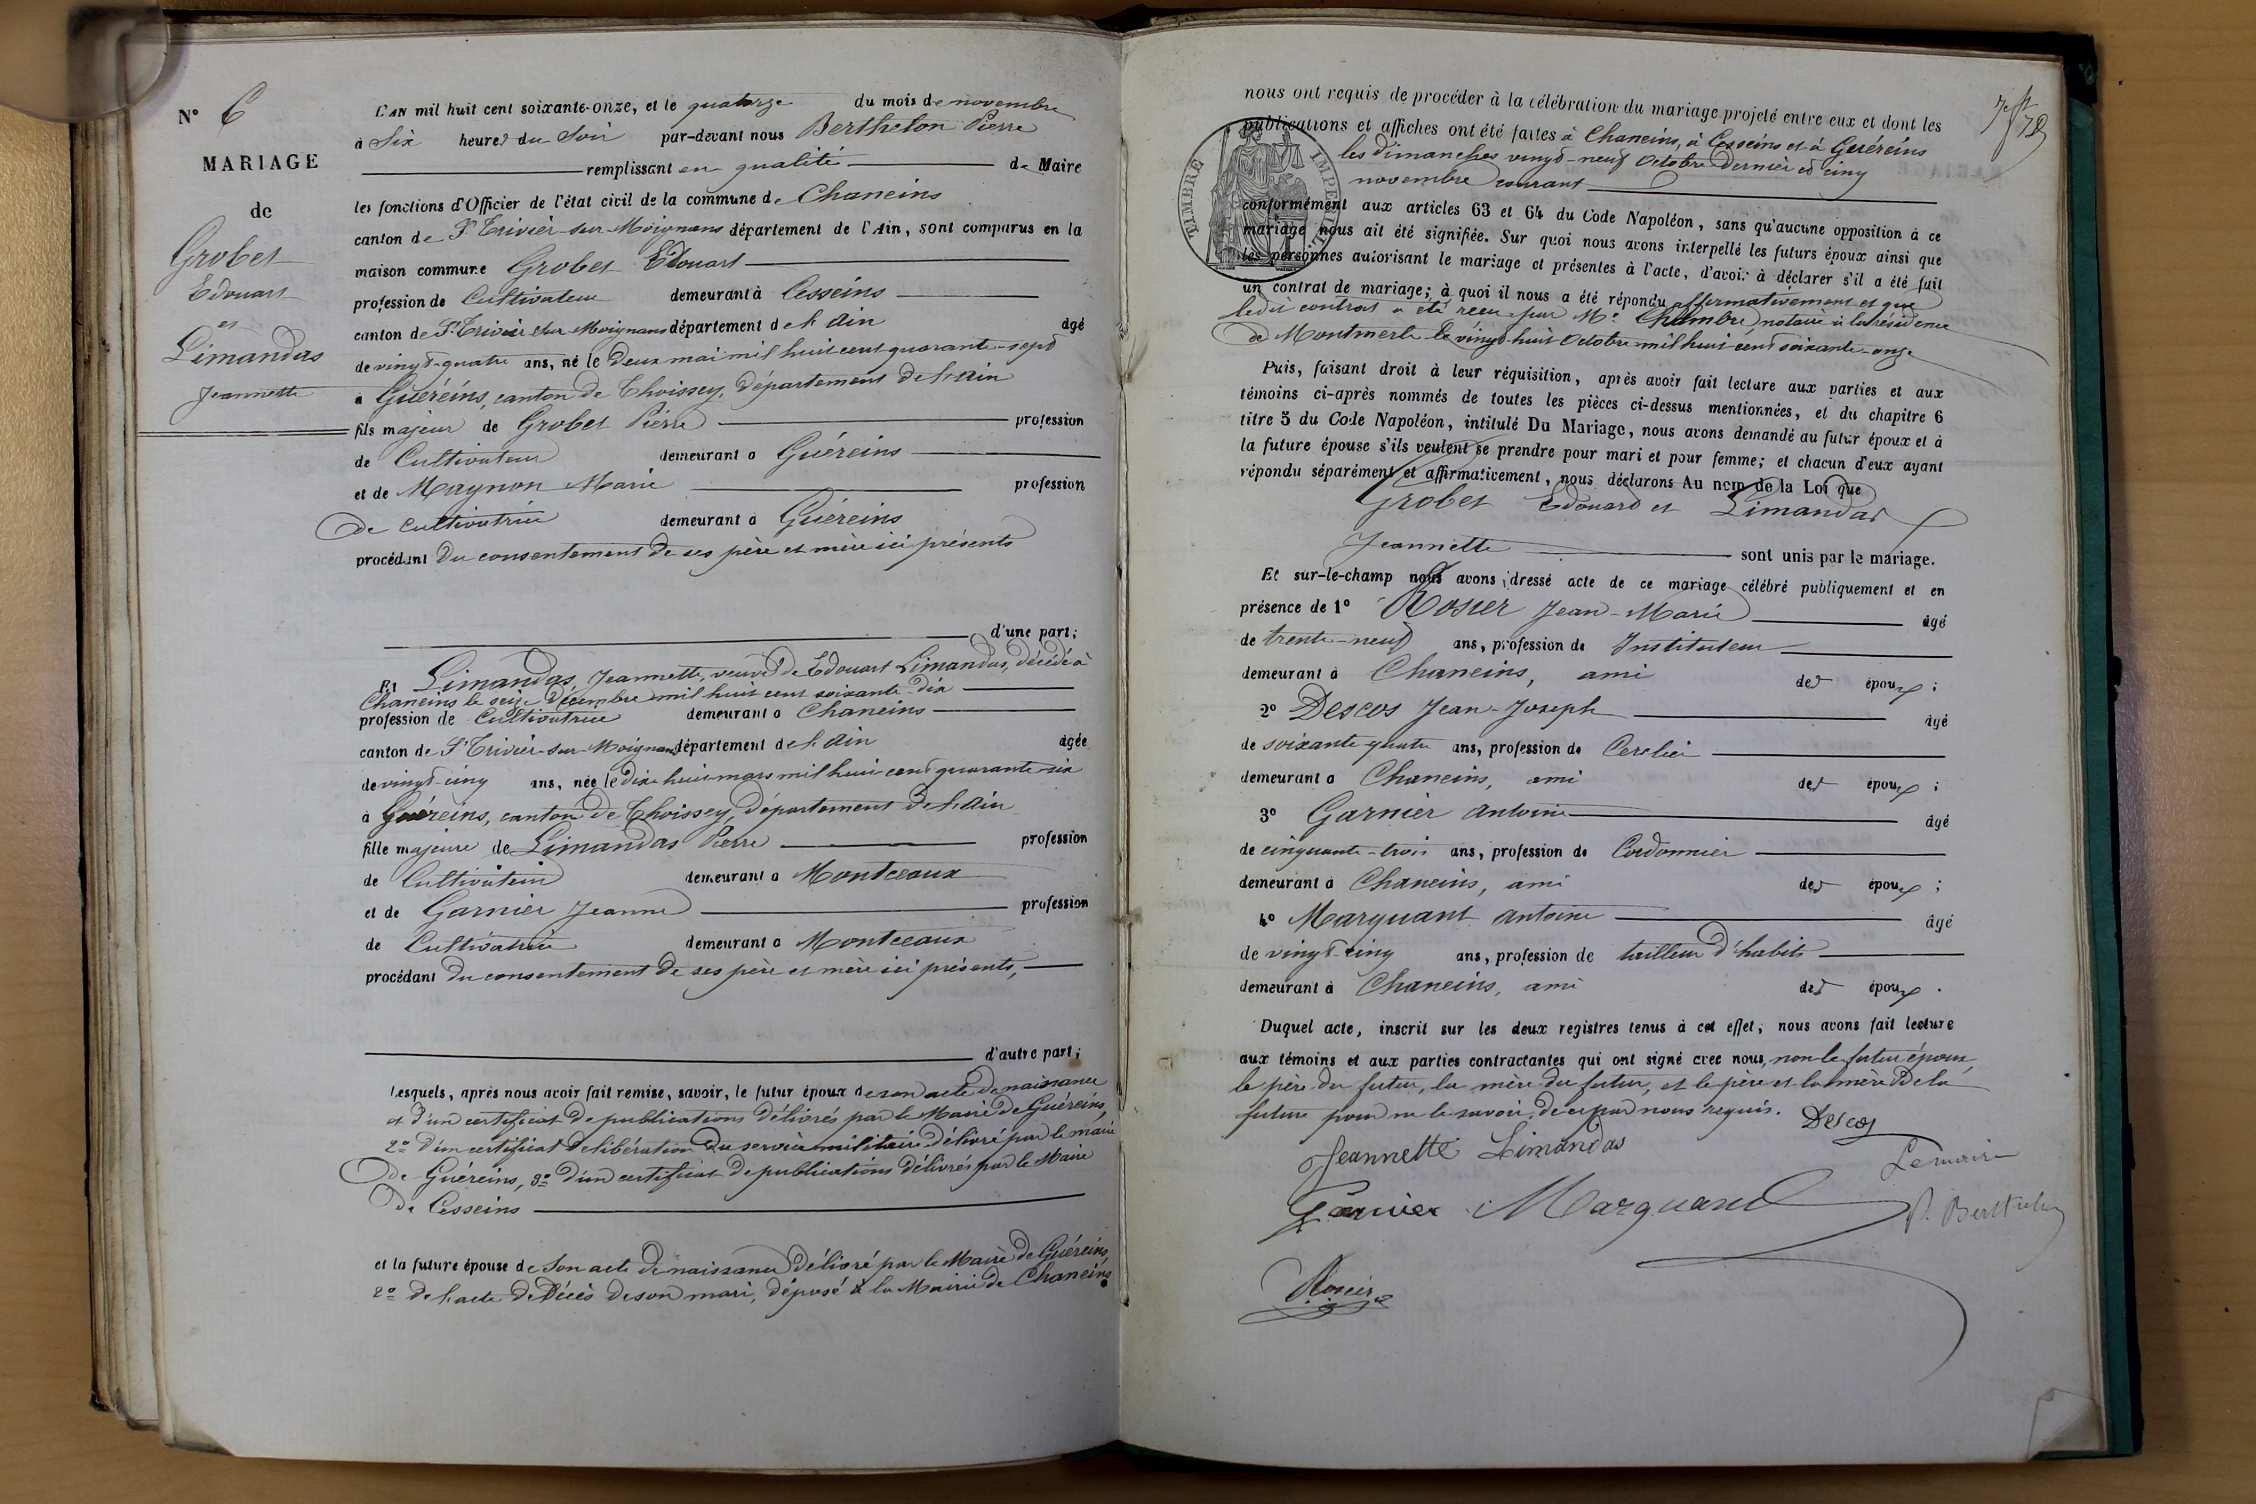 N° 6
MARIAGE
de
Grobet
Edouart
et
Limandas
Jeannette
L'AN mil huit cent soixante-onze, et le quatorze du mois de novembre
à Six heures du Soir par-devant nous Berthelon Pierre
remplissant en qualité de Maire
les fonctions d'Officier de l'état civil de la commune de Chaneins
canton de St Trivier-sur-Moignans département de l'Ain, sont comparus en la
maison commune Grobet Edouart
profession de Cultivateur demeurant à Cesseins
canton de St Trivier sur Moignans département de l'Ain âgé
de vingt-quatre ans, né le Deux mai mil huit cent quarante-sept
à Guéreins, canton de Thoissey, Département de l'Ain
fils majeur de Grobet Pierre profession
de Cultivateur demeurant à Guéreins
et de Magnon Marie profession
de cultivatrice demeurant à Guéreins
procédant du consentement de ses père et mère ici présents
d'une part;
Et Limandas, Jeannette, veuve de Edouart Limandas, décédé à
Chaneins le seize Décembre mil huit cent soixante-dix
profession de Cultivatrice demeurant à Chaneins
canton de St Trivier-sur-Moignans département de l'Ain âgée
de vingt-cinq ans, née le Dix huit mars mil huit cent quarante-six
à Guéreins, canton de Thoissey, département de l'Ain
fille majeure de Limandas Pierre profession
de Cultivateur demeurant à Montceaux
et de Garnier Jeanne profession
de Cultivatrice demeurant à Montceaux
procédant du consentement de ses père et mère ici présents,
d'autre part;
Lesquels, après nous avoir fait remise, savoir, le futur époux de son acte de naissance
et d'un certificat de publications délivrés par le Maire de Guéreins,
2° D'un certificat de libération du service militaire délivré par le maire
de Guéreins, 3° d'un certificat de publications délivrés par le Maire
de Cesseins
et la future épouse de son acte de naissance délivré par le Maire de Guéreins,
2° de l'acte de Décès de son mari, déposé à la Mairie de Chaneins
nous ont requis de procéder à la célébration du mariage projeté entre eux et dont les
publications et affiches ont été faites à Chaneins, à Cesseins et à Guéreins
les dimanches vingt-neuf Octobre dernier et cinq
novembre courant
TIMBRE IMPERIAL
conformément aux articles 63 et 64 du Code Napoléon, sans qu'aucune opposition à ce
mariage nous ait été signifiée. Sur quoi nous avons interpellé les futurs époux ainsi que
les personnes autorisant le mariage et présentes à l'acte, d'avoir à déclarer s'il a été fait
un contrat de mariage; à quoi il nous a été répondu affirmativement et que
ledit contrat a été recu par Me Chambre, notaire à la résidence
de Montmerle le vingt-huit Octobre mil huit cent soixante-onze
Puis, faisant droit à leur réquisition, après avoir fait lecture aux parties et aux
témoins ci-après nommés de toutes les pièces ci-dessus mentionnées, et du chapitre 6
titre 5 du Code Napoléon, intitulé Du Mariage, nous avons demandé au futur époux et à
la future épouse s'ils veulent se prendre pour mari et pour femme; et chacun d'eux ayant
répondu séparément et affirmativement, nous déclarons Au nom de la Loi que
Grobet Edouard et Limandas
Jeannette sont unis par le mariage.
Et sur-le-champ nous avons dressé acte de ce mariage célébré publiquement et en
présence de 1° Rosier Jean-Marie âgé
de trente-neuf ans, profession de Instituteur
demeurant à Chaneins, ami des époux;
2° Descos Jean-Joseph âgé
de soixante-quatre ans, profession de Cerclier
demeurant à Chaneins, ami des époux;
3° Garnier Antoine âgé
de cinquante-trois ans, profession de Cordonnier
demeurant à Chaneins, ami des époux;
4° Marquant Antoine âgé
de vingt-cinq ans, profession de tailleur d'habits
demeurant à Chaneins, ami des époux.
Duquel acte, inscrit sur les deux registres tenus à cet effet, nous avons fait lecture
aux témoins et aux parties contractantes qui ont signé avec nous, non le futur époux,
le père du futur, la mère du futur, et le père et la mère de la
future pour ne le savoir, de ce par nous requis. Descos
Jeannette Limandas
Le maire
Garnier Marquand P. Berthelon
Rosier